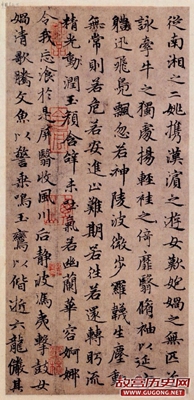 從南湘之二姚攜漢濱之游女歎媧之無匹兮
詠牽牛之獨處揚輕袿之倚靡翳脩袖以延
佇體迅飛鳧飄忽若神陵波微步羅襪生塵動
無常則若危若安進止難期若往若還轉眄流
精光動潤玉顏含辭未吐氣若幽蘭華容婀娜
令我忘湌於是屏翳收風川后靜波馮夷擊鼓女
媧清歌騰文魚以警乘鳴玉鸞以偕逝六龍儼其